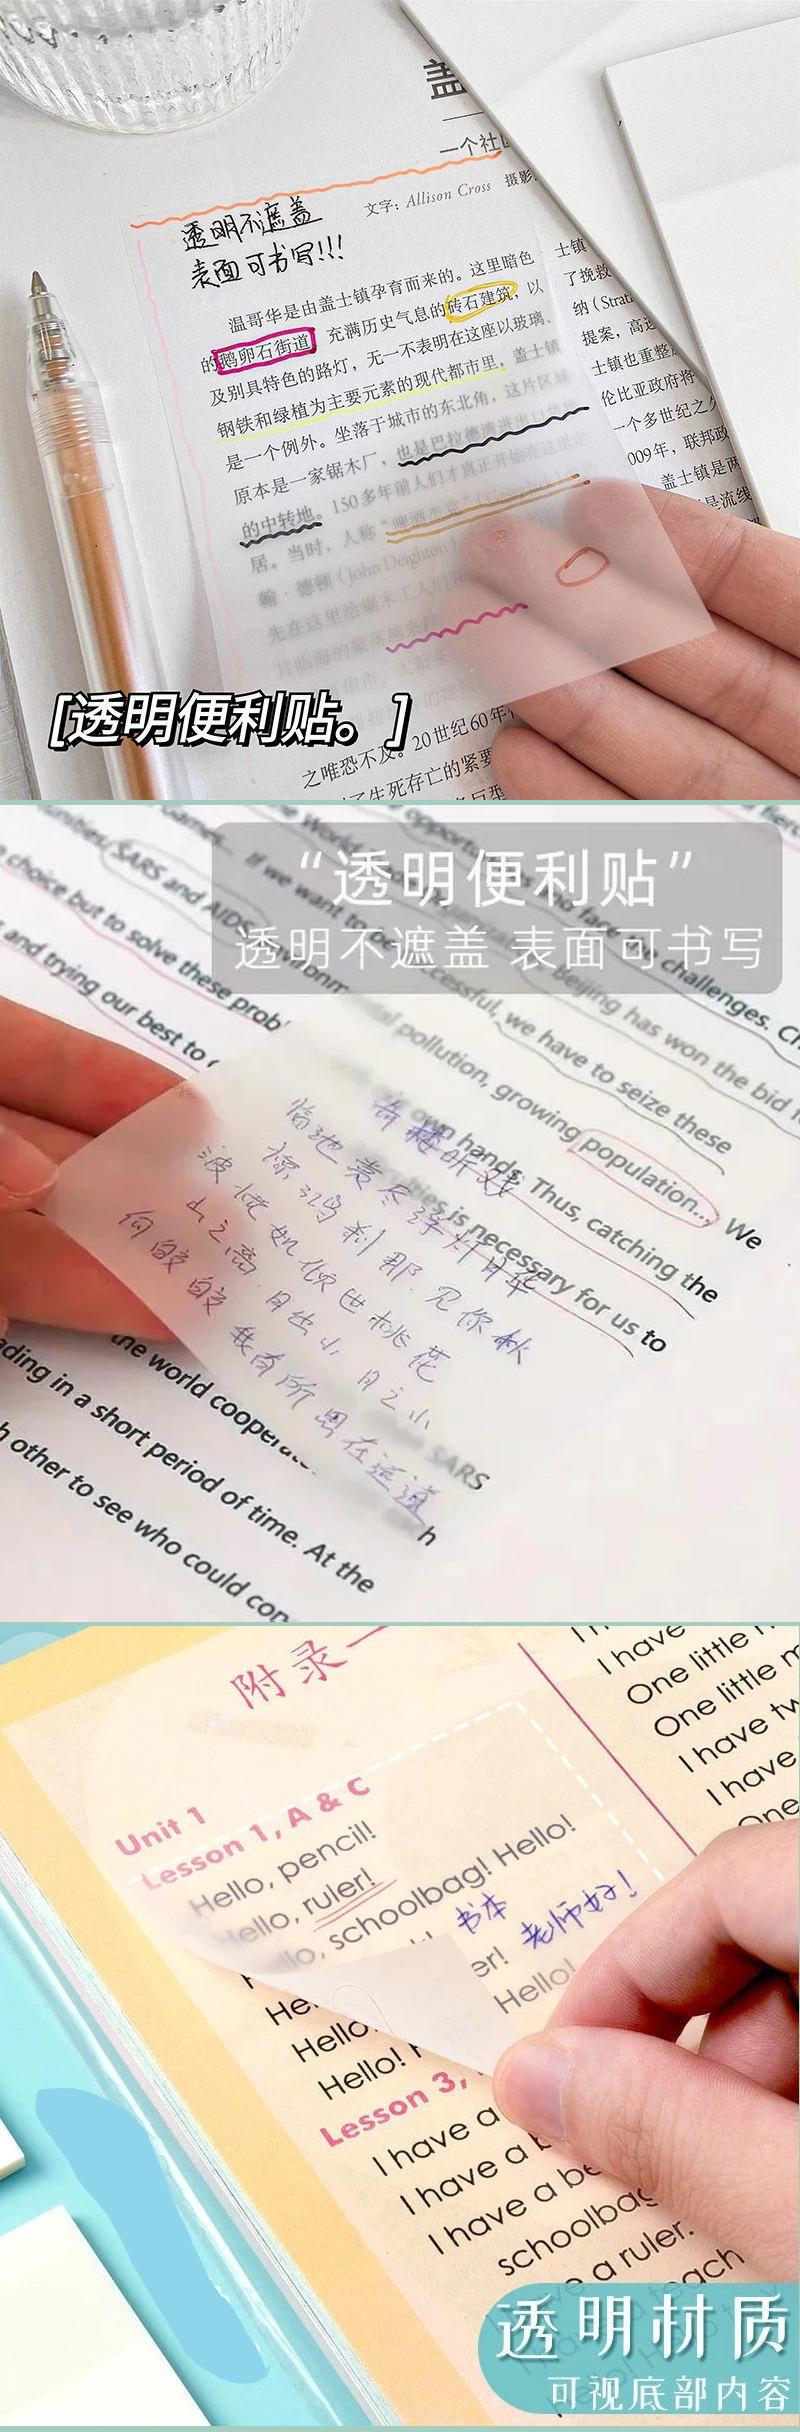 盖
一个社
文字：Allison Cross 摄影：
透明不遮盖
表面可书写!!!
温哥华是由盖士镇孕育而来的。这里暗色
的鹅卵石街道，充满历史气息的砖石建筑，以
及别具特色的路灯，无一不表明在这座以玻璃、
钢铁和绿植为主要元素的现代都市里，盖士镇
是一个例外。坐落于城市的东北角，这片区域
原本是一家锯木厂，也是巴拉德湾进出口货物
的中转地。150多年前人们才真正开始在这里定
居。当时，人称“啤酒杰克”（Gassy Jack）的约
翰·德顿（John Deighton）
先在这里给锯木工人们
片临海的聚落越来
之唯恐不及。20世纪60年
了生死存亡的紧要
士镇
了挽救
纳（Strat
提案，高速
士镇也重整
伦比亚政府将
一个多世纪之久
009年，联邦政
盖士镇是两
是流线
[透明便利贴。]
“透明便利贴”
透明不遮盖 表面可书写
Games.
SARS and AIDS,
If we want to be successful, we have to seize these
the World
opport
face the challenges. Ch
Beijing has won the bid f
choice but to solve these prob
s and trying our best to
environmental pollution, growing population... We
own hands. Thus, catching the
is necessary for us to
高楼听戏
临池赏尽绛灯月华
惊鸿刹那 见你秋
波慌如倾世桃花
山之高 月出小 月之小
何皎皎 我有所思在远道
SARS
h
the world coopera
ading in a short period of time. At the
h other to see who could con
附录一
Unit 1
Lesson 1, A & C
Hello, pencil!
Hello, ruler!
Hello, schoolbag! Hello!
书本
er! 老师好!
Hello!
He
Hello
Hello!
Lesson 3,
I have a
I have a b
I have a be
schoolbag
e a ruler.
each
I have
One little
One little m
I have tw
I have
One
透明材质
可视底部内容